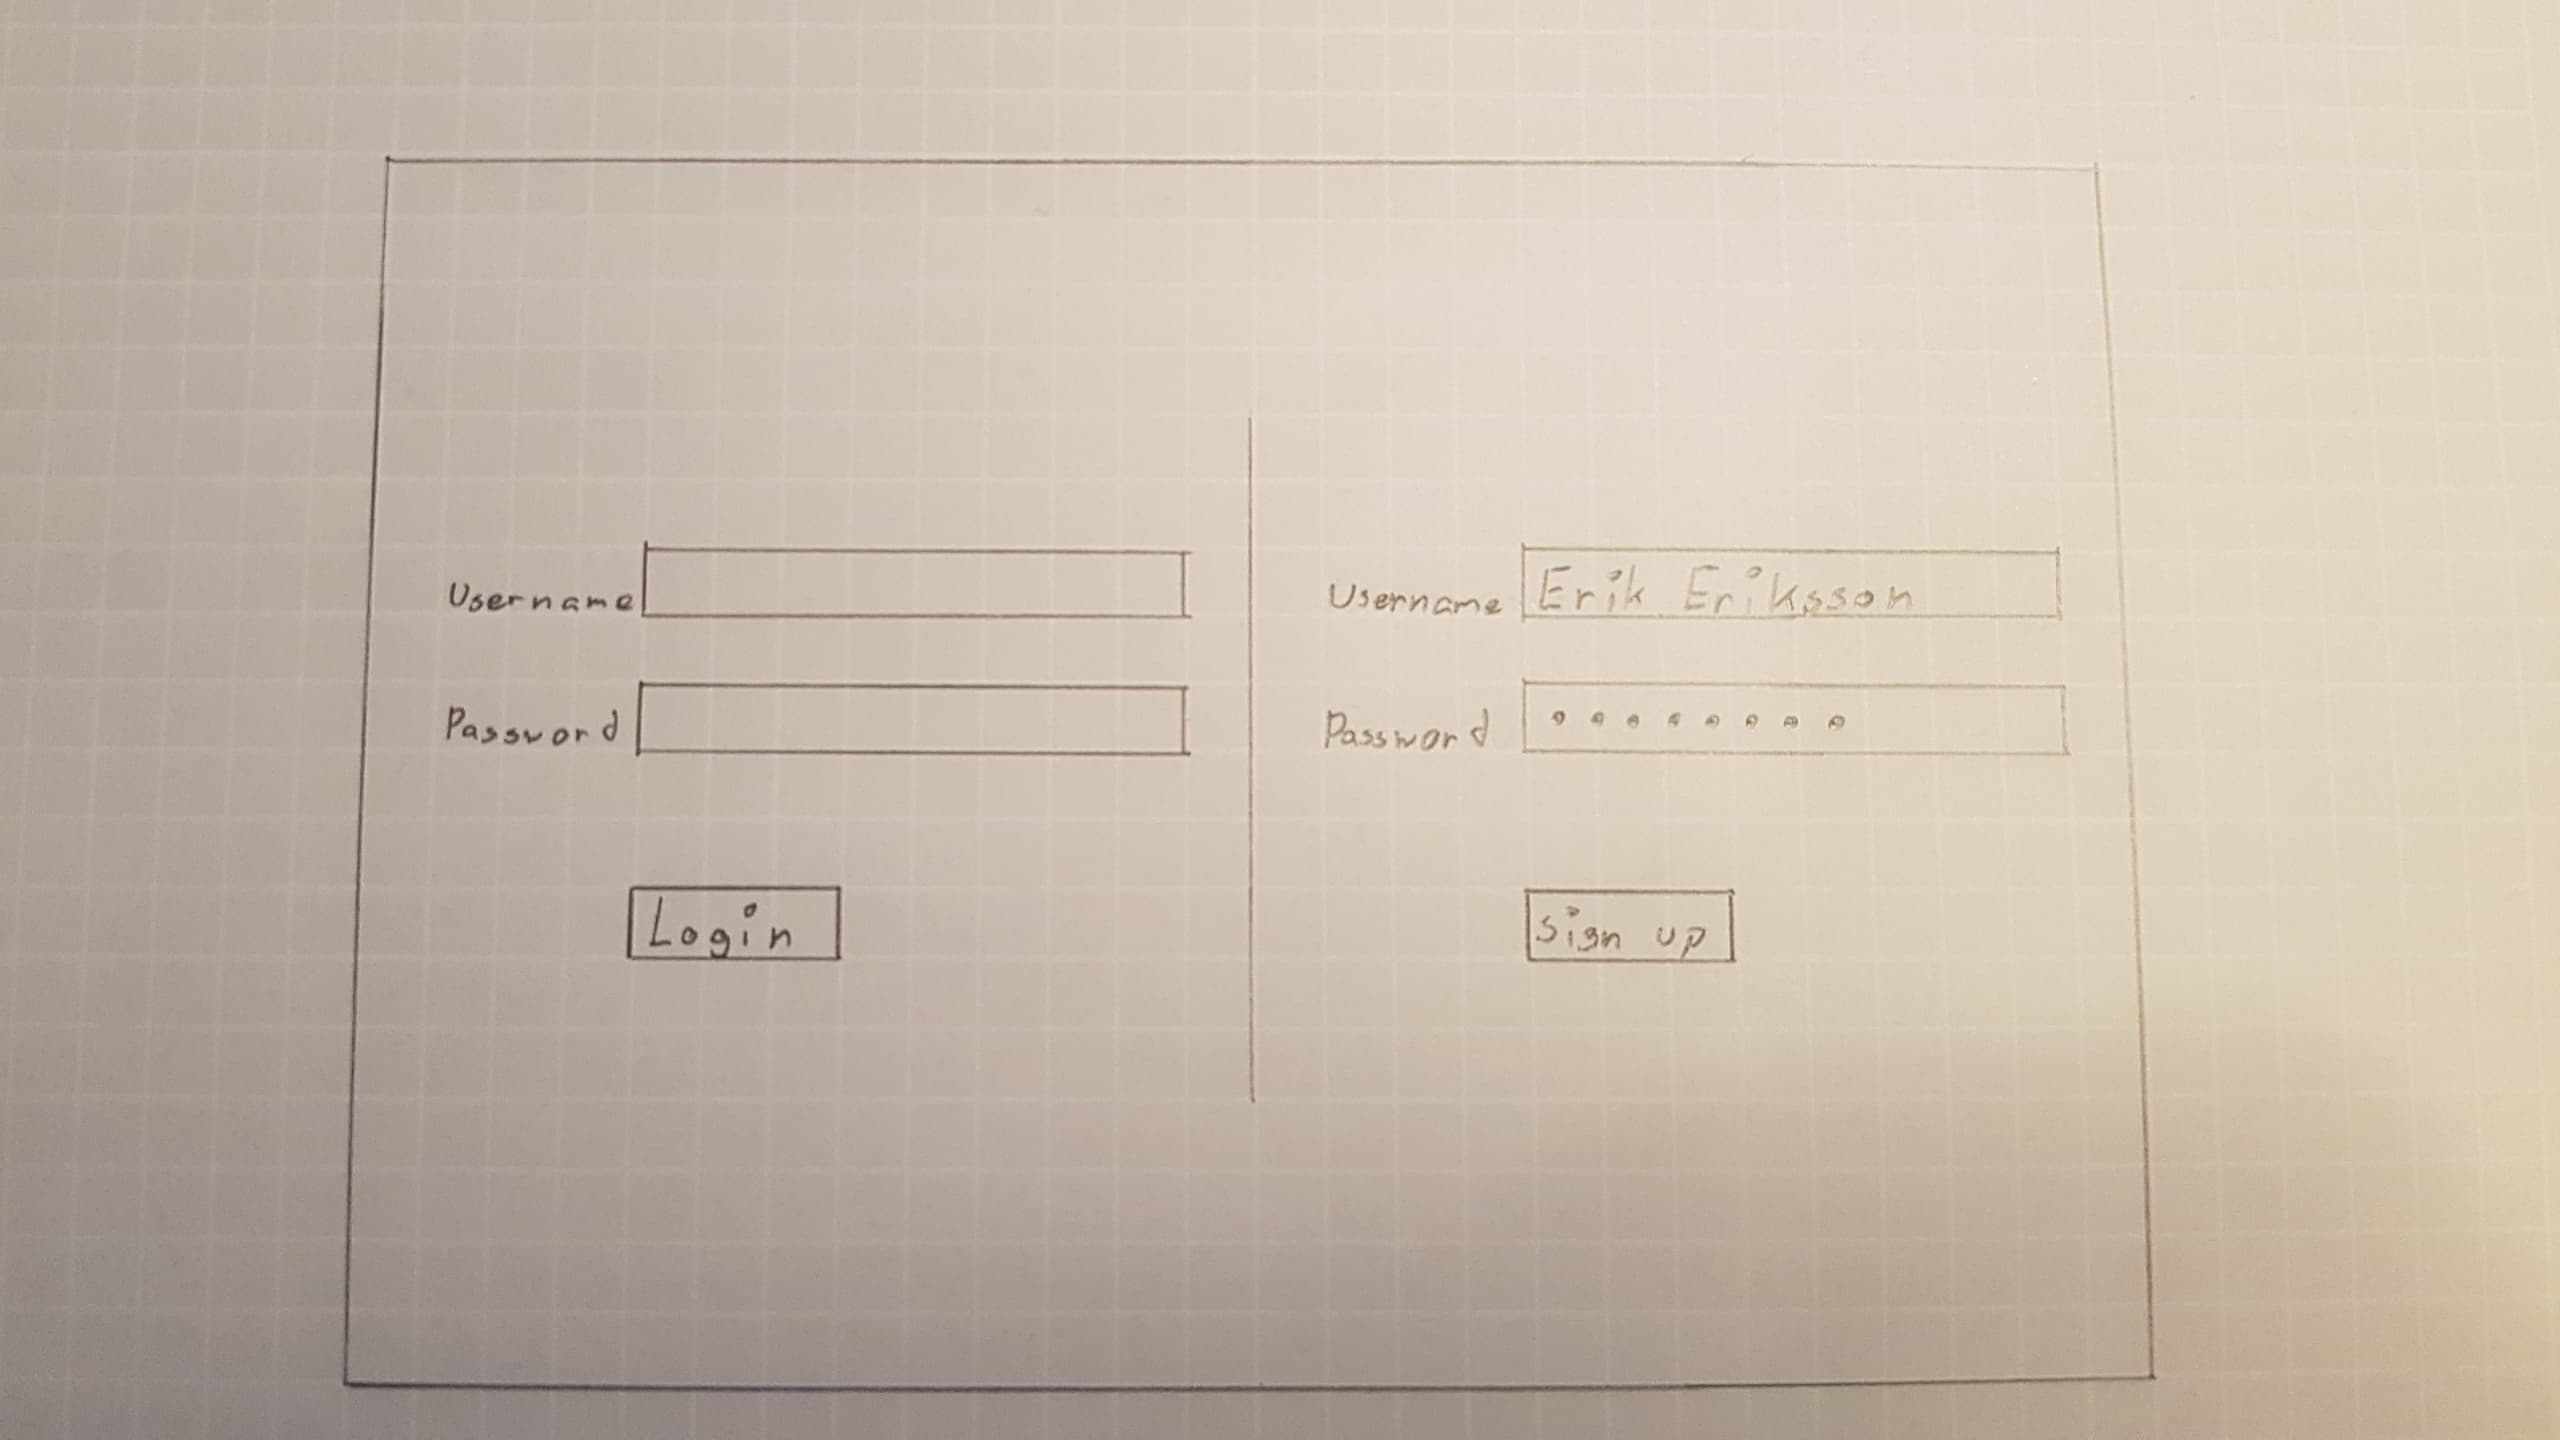 Username
Password
Login
Username Erik Eriksson
Password ••••••••
Sign up